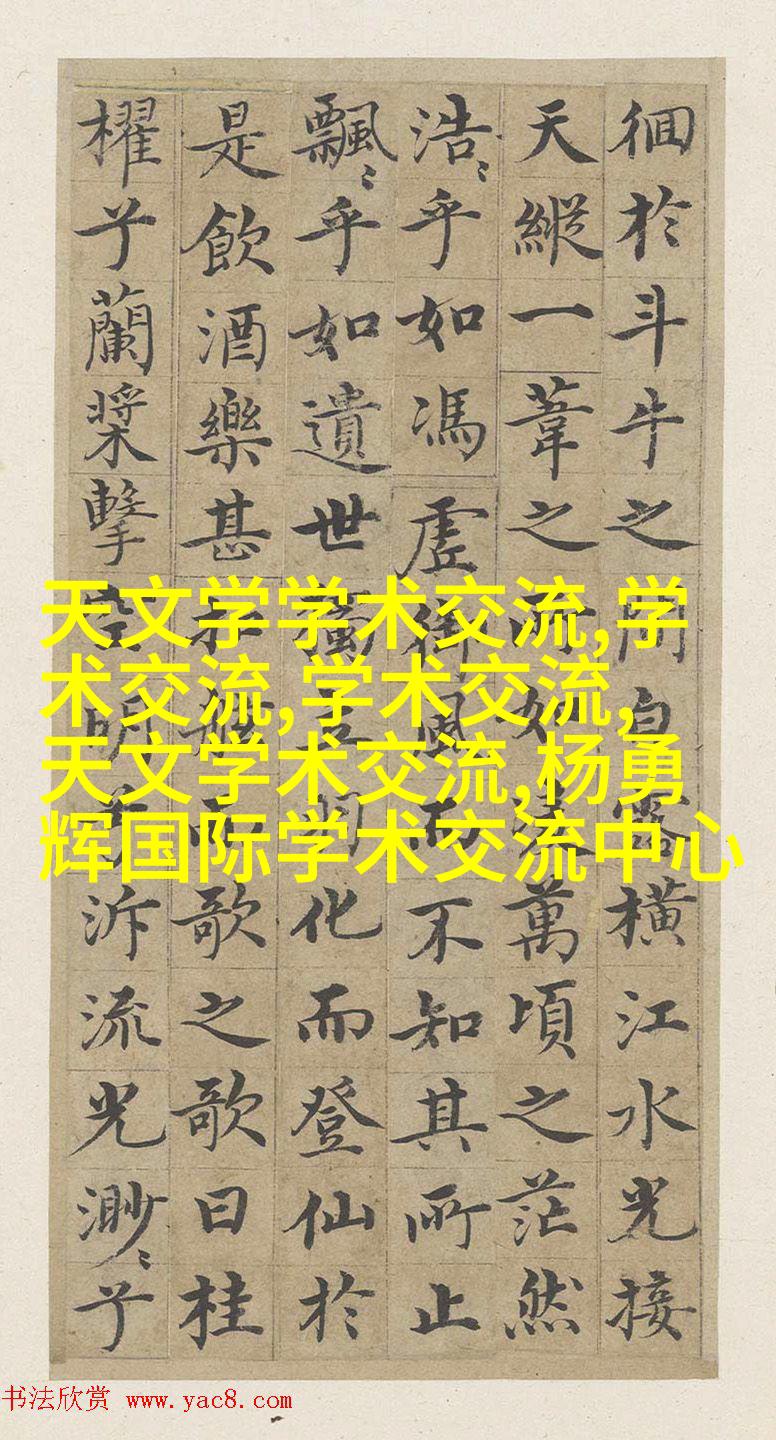 徊於斗牛之間白露橫江水光接
天縱一葦之所如凌萬頃之茫然
浩〻乎如馮虛御風而不知其所止
飄〻乎如遺世獨立羽化而登仙於
是飲酒樂甚扣舷而歌之歌曰桂
櫂兮蘭槳擊空明兮泝流光渺〻兮
天文学学术交流,学
术交流,学术交流,
天文学术交流,杨勇
辉国际学术交流中心
书法欣赏 www.yac8.com